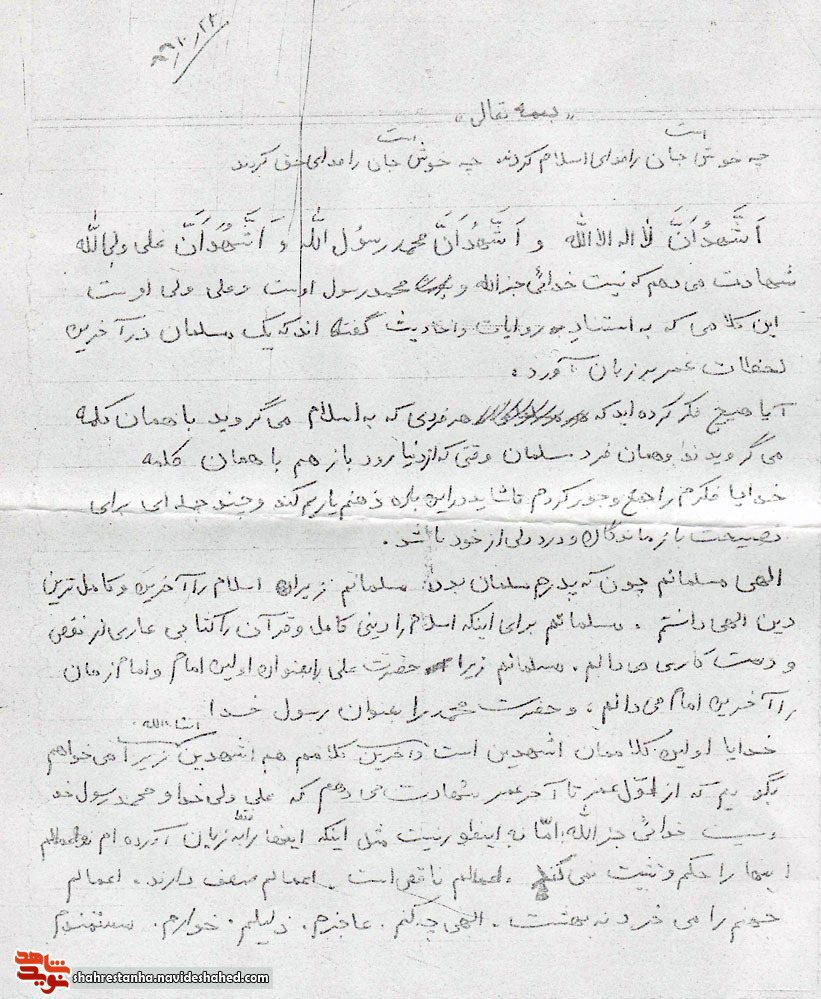 «بسمه تعالی»
است است
چه خوش جان را فدای اسلام کردند چه خوش جان را فدای حق کردند
اَشَّهدُاَنَّ لاٰ اله الا الله و اَشَّهدُاَنَّ محمد رسوُل الله و اَشَّهدُاَنَّ علی ولی الله
شهادت می دهم که نیست خدائی جز الله و محمد رسول اوست و علی ولی اوست
این کلامی که به استناد روایات و احادیث گفته اند که یک مسلمان در آخرین
لحظات عمر بر زبان آورد.
آیا هیچ فکر کرده اید که هر فردی که به اسلام می گروید با همان کلمه
می گروید و همان فرد مسلمان وقتی که از دنیا رود باز هم با همان کلمه
خدایا فکرم را جمع و جور کردم تا شاید در این باره ذهنم یاریم کند و چند جمله ای برای
نصیحت بازماندگان و درد دلی از خود باشد.
الهی مسلمانم چون که پدرم مسلمان بود. مسلمانم زیرا اسلام را آخرین و کامل ترین
دین الهی دانستم. مسلمانم برای اینکه اسلام را دینی کامل و قرآن را کتابی عاری از نقص
و دست کاری می دانم. مسلمانم زیرا حضرت علی را بعنوان اولین امام و امام زمان
را آخرین امام می دانم، و حضرت محمد را بعنوان رسول خدا
انشاءالله
خدایا اولین کلاممان اشهدین است و آخرین کلامم هم اشهدین زیرا می خواهم
بگویم که از اول عمر تا آخر عمر شهادت می دهم که علی ولی خدا و محمد رسول خدا
و نیست خدائی جز الله. امّا نه اینطور نیست مثل اینکه اینها را فقط به زبان آورده ام اعمالم
اینها را حکم و تثبیت نمی کند. اعمالم ناقص است. اعمالم ضعف دارند. اعمالم
جهنم را می خرد نه بهشت. الهی چه کنم. عاجزم. ذلیلم. خوارم. مستمندم
نوید شاهد
shahrestanha.navideshahed.com